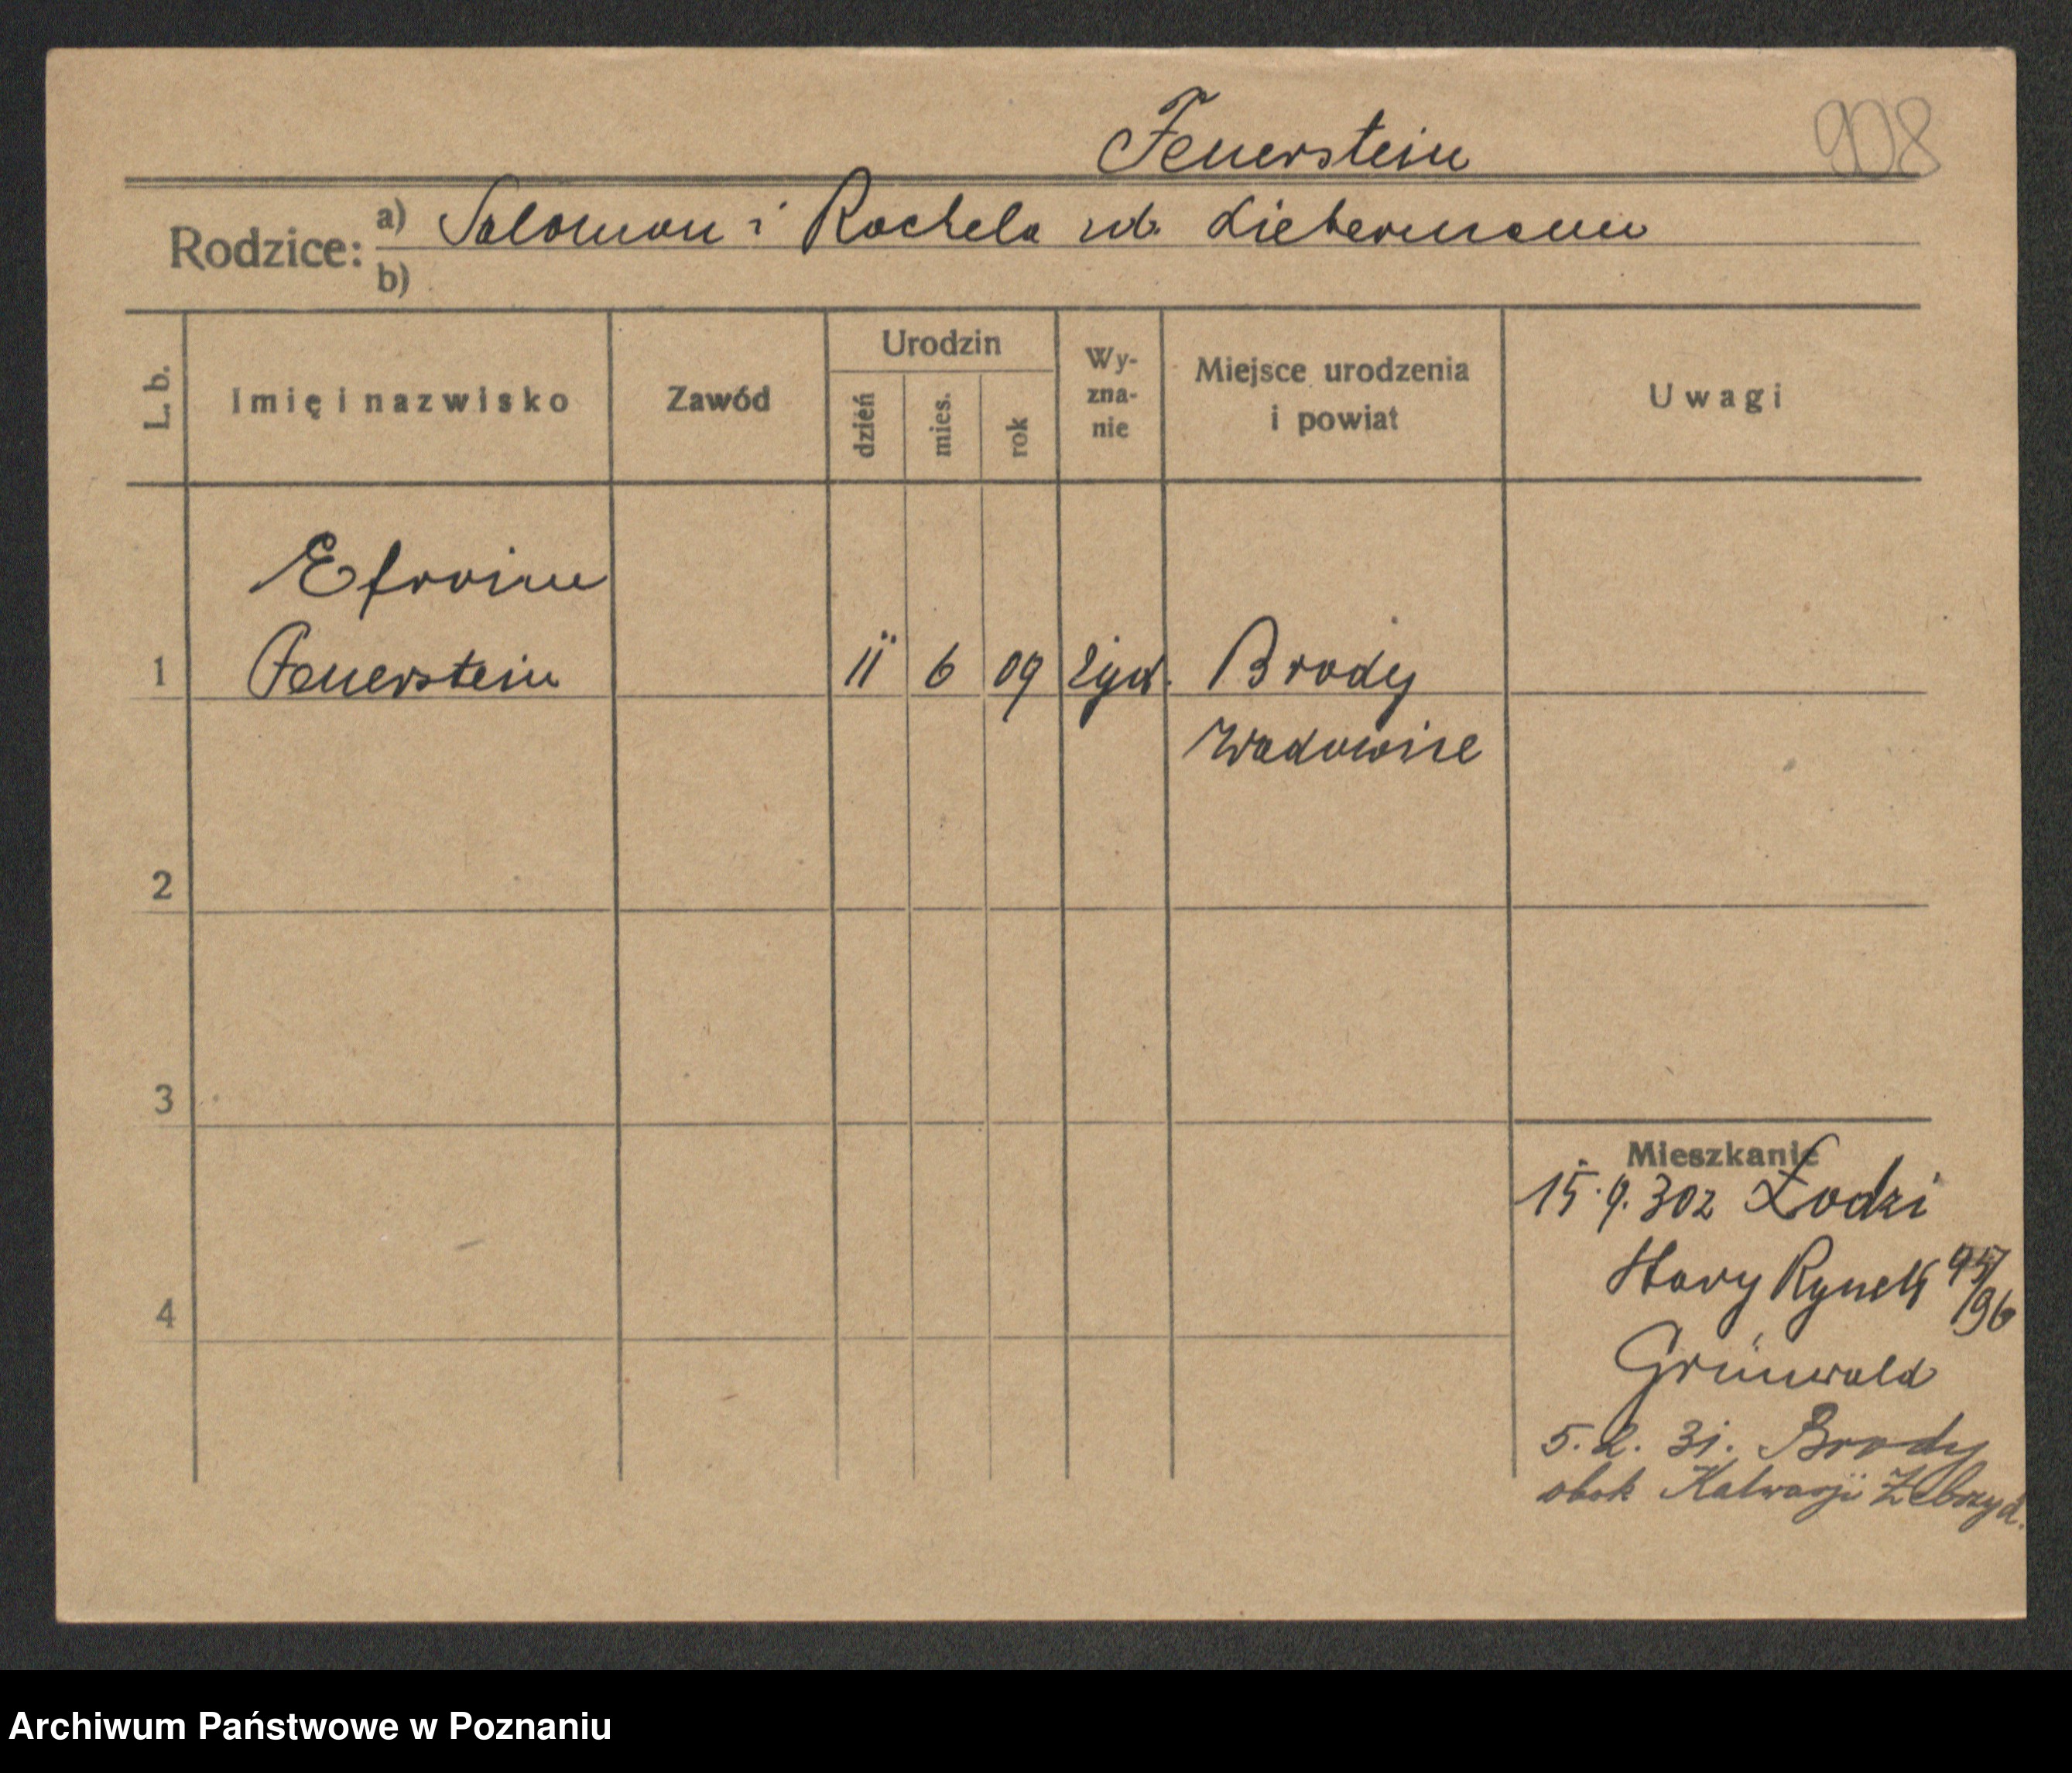 Feuerstein 908
Rodzice: a) Salomon i Rachela zd. Liebermann
b)
L. b. Imię i nazwisko Zawód Urodzin dzień mies. rok Wyznanie Miejsce urodzenia i powiat Uwagi
Efroim
1 Feuerstein 11 6 09 żyd. Brody
Wadowice
2
3
Mieszkanie
15.9.30 z Łodzi
Stary Rynek 95/96
4
Grünwald
5.2.31. Brody
obok Kalwarji Zebrzyd.
Archiwum Państwowe w Poznaniu